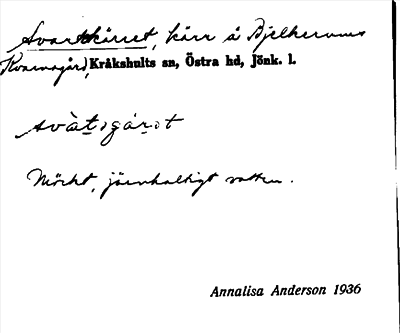 Svartkärret, kärr å Bjelkerums
Kvarnagärd, Kråkshults sn, Östra hd, Jönk. l.
Mörkt, järnhaltigt vatten.
Annalisa Anderson 1936